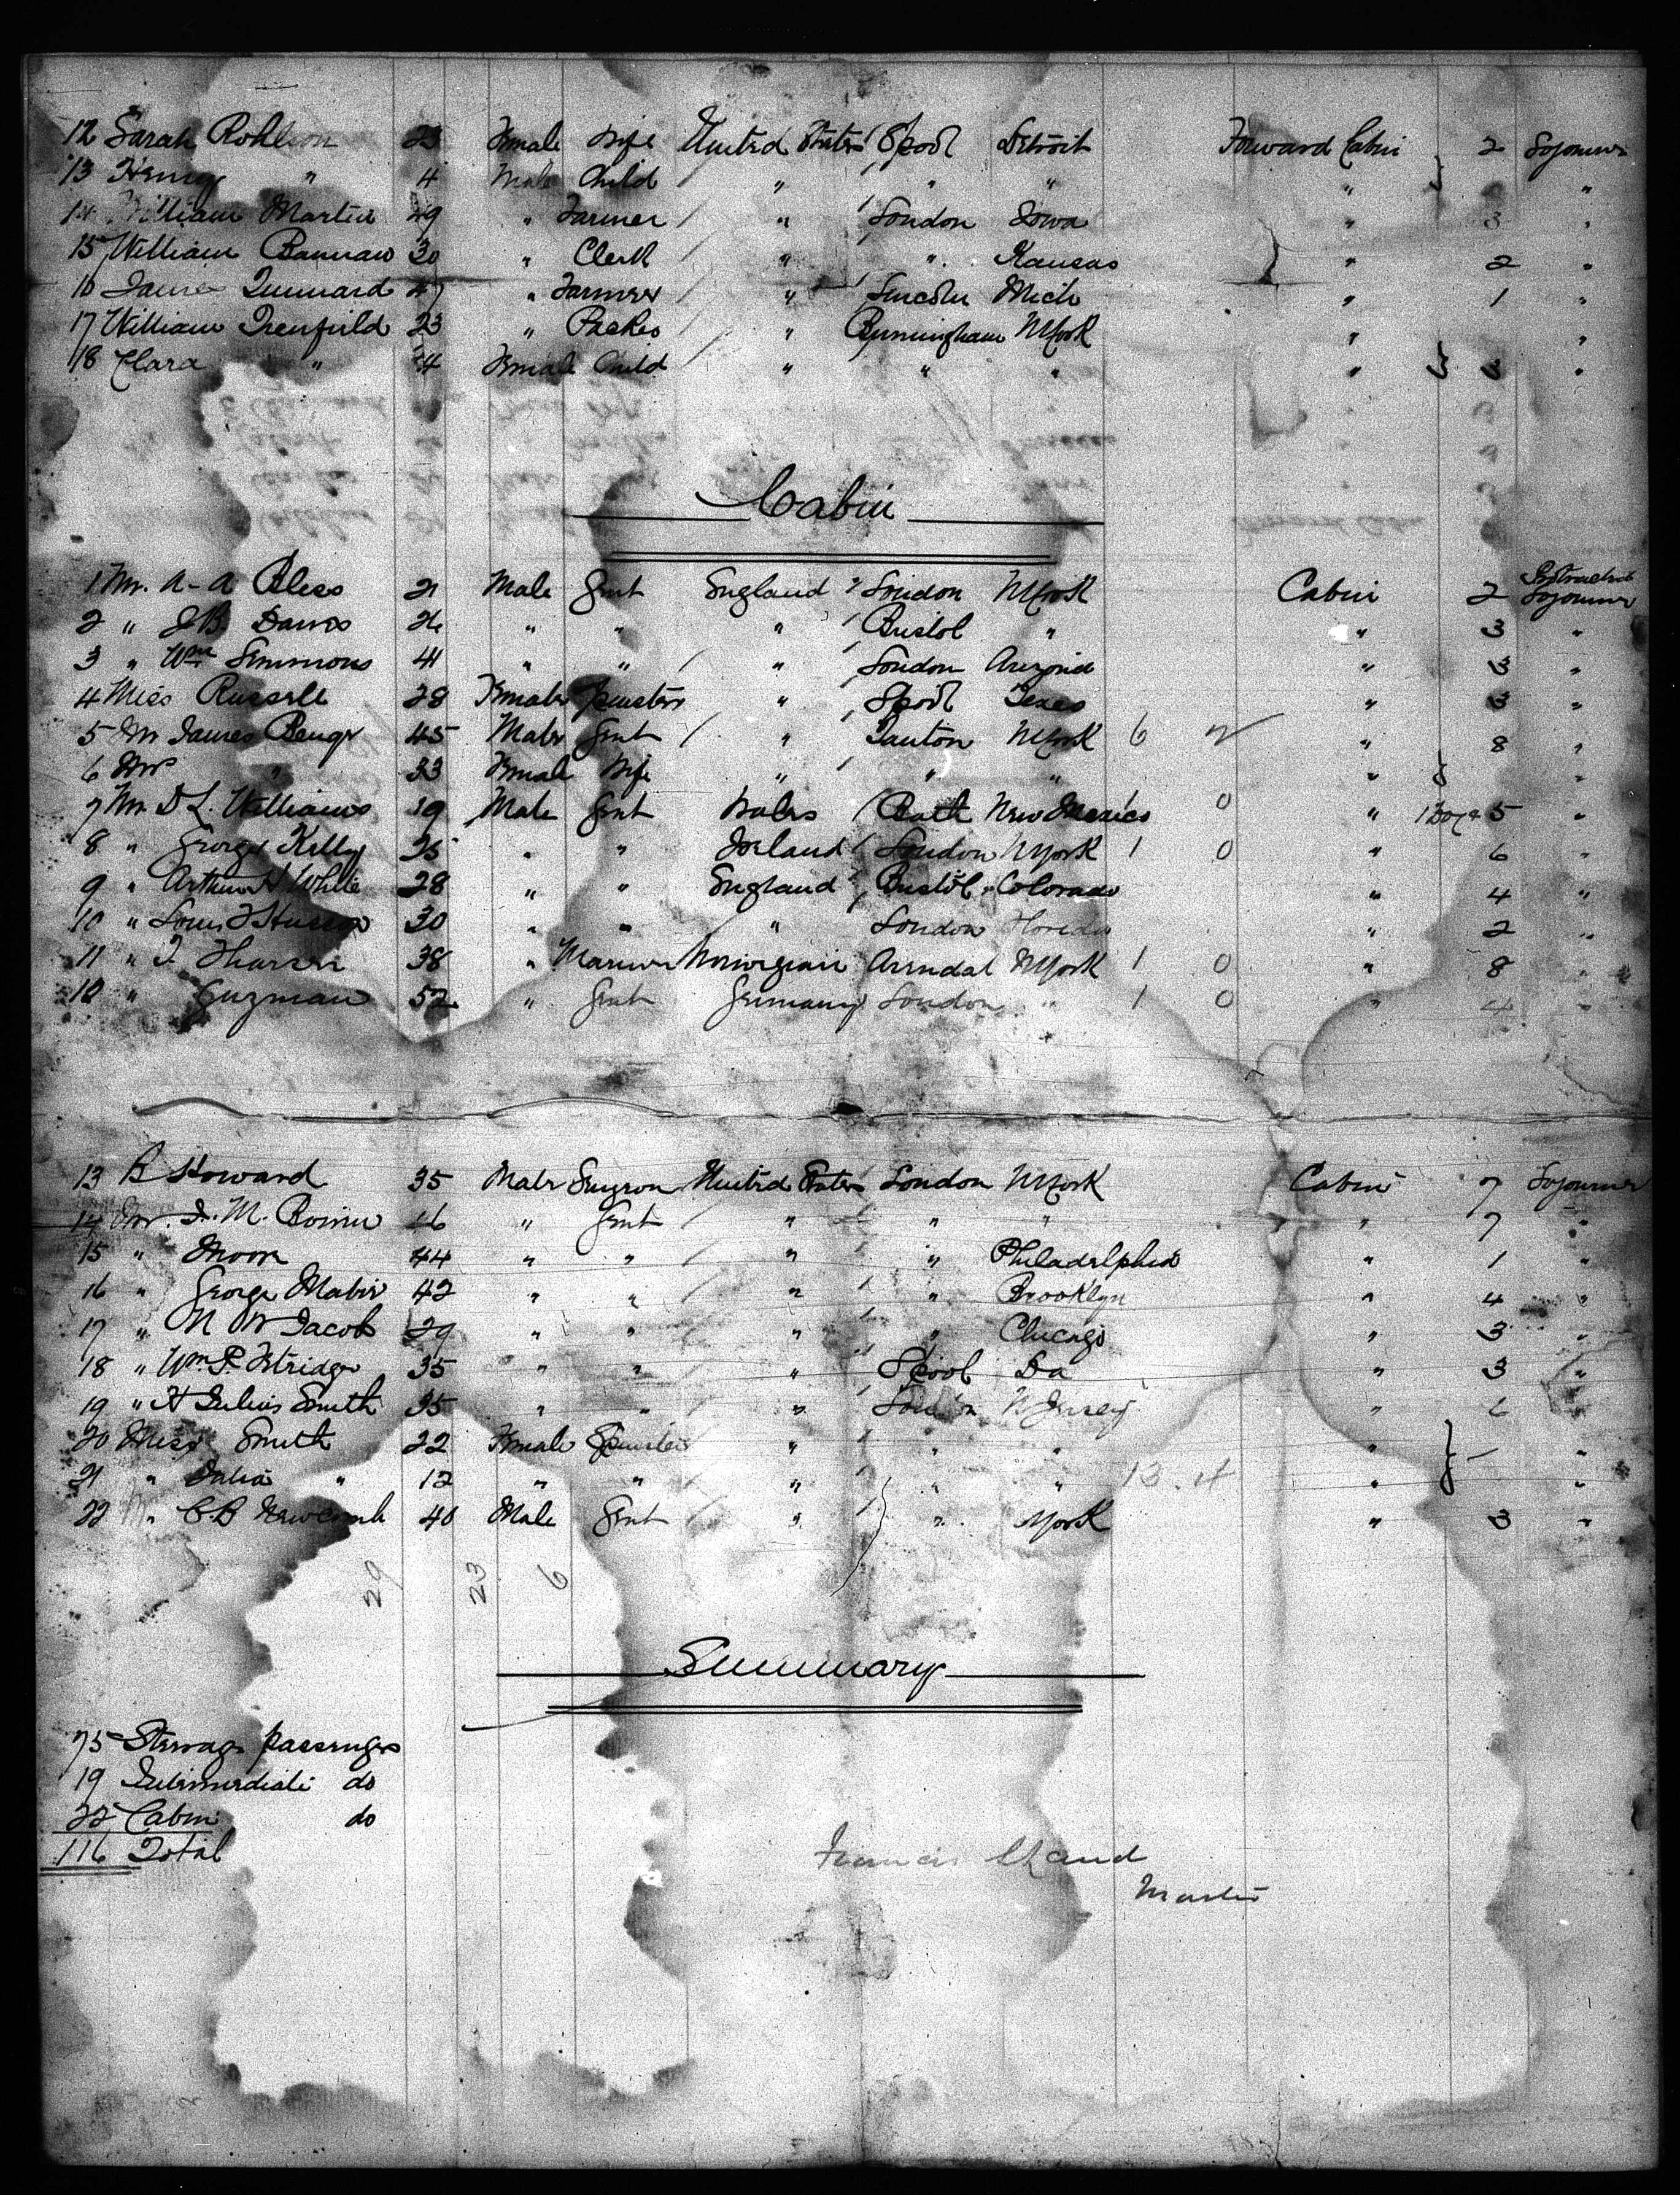 12 Sarah 23 Female Wife United States L'pool Detroit Forward Cabin 2 Sojourner
13 Henry " 4 Male Child " " " " "
14 William Martin 29 " Farmer " London Iowa " 3 "
15 William 30 " Clerk " " Kansas " 2 "
16 James 47 " Farmer " Lincoln Mich " 1 "
17 William 23 " " Birmingham NYork " "
18 Clara " 4 Female Child " " " " 3 "
Cabin
1 Mr. A-A 21 Male Gent England " London NYork Cabin 2 Protracted Sojourner
2 " J B 26 " " " Bristol " " 3 "
3 " Wm Simmons 41 " " " London " 3 "
4 Miss Russell 28 Female Spinster " L'pool Texas " 3 "
5 Mr James 45 Male Gent " NYork 6 2 " 8 "
6 Mrs " 33 Female Wife " " " " "
7 Mr D L. Williams 19 Male Gent Wales Bath New Mexico 0 " 5 "
8 " George Kelly 25 " " Ireland London NYork 1 0 " 6 "
9 " Arthur H White 28 " " England Bristol Colorado " 4 "
10 " Louis 30 " " " London Florida " 2 "
11 " T. 38 " Mariner Norwegian Arendal NYork 1 0 " 8 "
12 " Guzman 52 " Gent Germany London " 1 0 " 4 "
13 B Howard 35 Male United States London NYork Cabin 7 Sojourner
14 Mr. J. M. 46 " Gent " " " " 7 "
15 " Moore 44 " " " " Philadelphia " 1 "
16 " George Mabie 42 " " " " Brooklyn " 4 "
17 " N W Jacob 29 " " " " Chicago " 3 "
18 " Wm P. 35 " " " L'pool Do " 3 "
19 " H Julius Smith 35 " " " London N Jersey " 6 "
20 Miss Smith 22 Female Spinster " " " " "
21 " Julia " 12 " " " " " 13.4 " "
22 Mr C.B Newcomb 40 Male Gent " " York " 3 "
29 23 6
Summary
75 Steerage passengers
19 Intermediate do
22 Cabin do
116 Total
Francis
Master